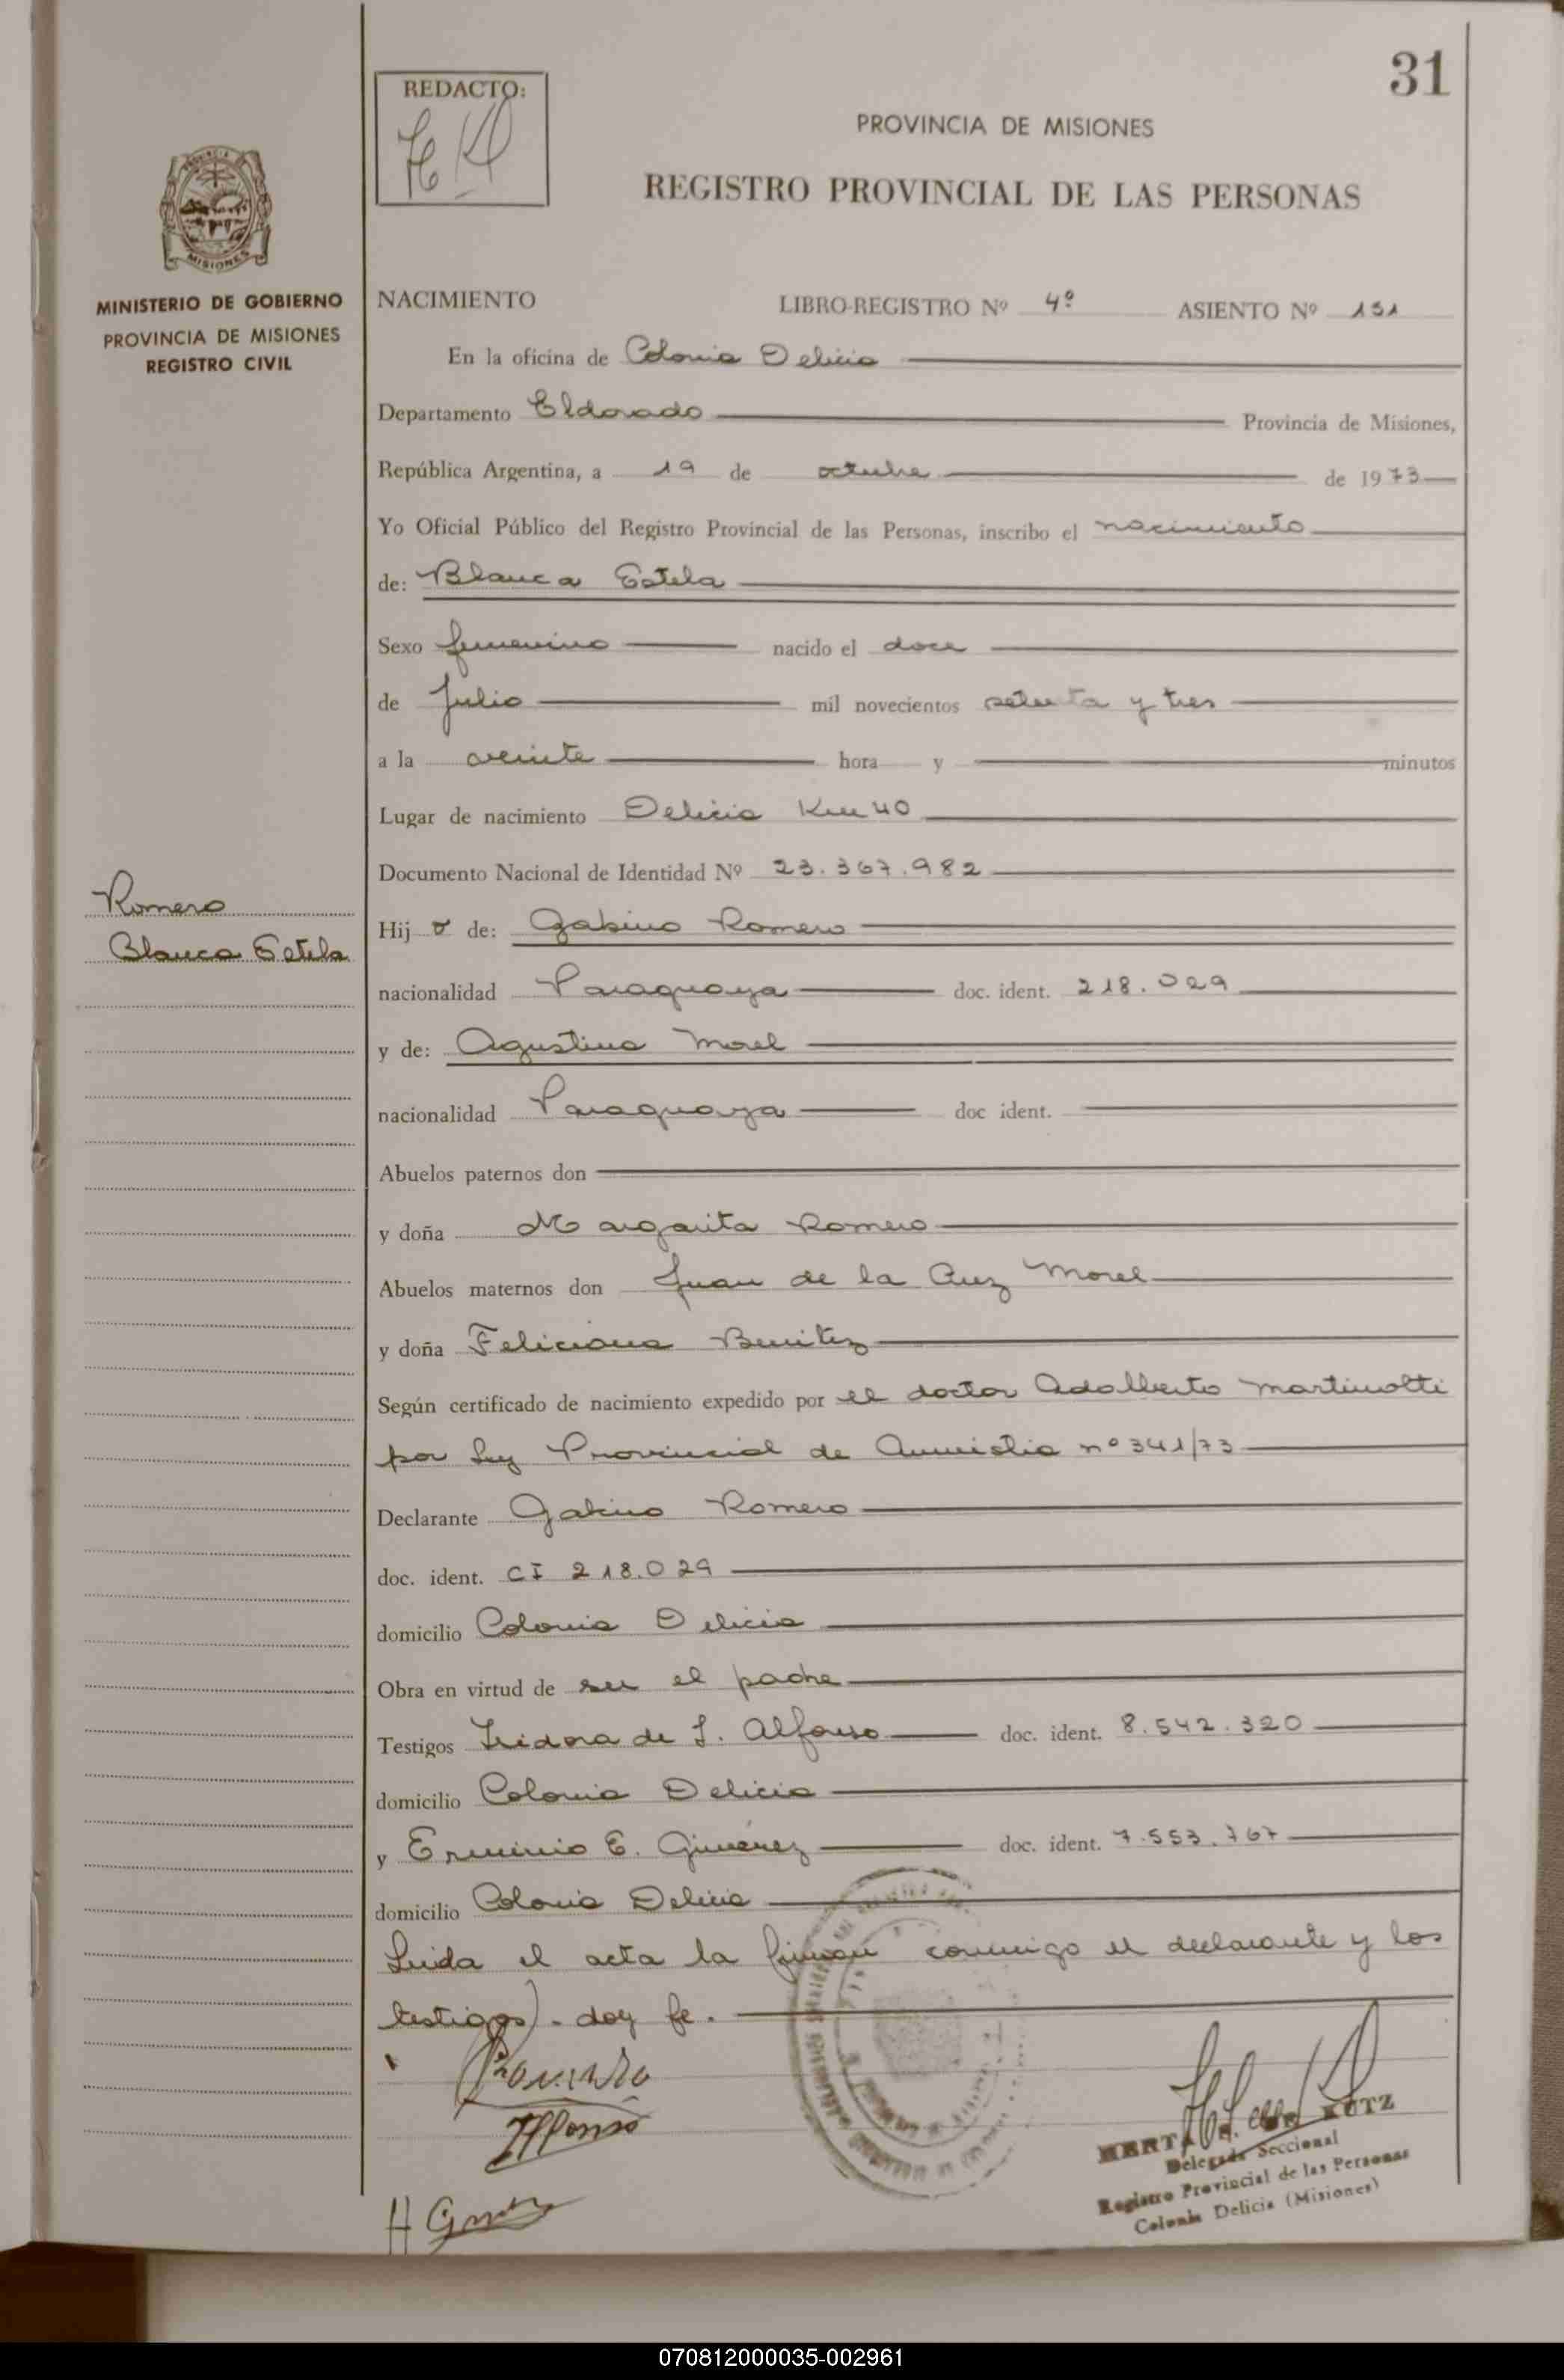 31
REDACTO:
PROVINCIA DE MISIONES
REGISTRO PROVINCIAL DE LAS PERSONAS
PROVINCIA DE
MISIONES
MINISTERIO DE GOBIERNO
PROVINCIA DE MISIONES
REGISTRO CIVIL
NACIMIENTO LIBRO-REGISTRO Nº 4º ASIENTO Nº 131
En la oficina de Colonia Delicia
Departamento Eldorado Provincia de Misiones,
República Argentina, a 19 de octubre de 1973
Yo Oficial Público del Registro Provincial de las Personas, inscribo el nacimiento
de: Blanca Estela
Sexo femenino nacido el doce
de Julio mil novecientos setenta y tres
a la veinte hora y minutos
Lugar de nacimiento Delicia Km 40
Documento Nacional de Identidad Nº 23.367.982
Romero
Blanca Estela
Hij a de: Gabino Romero
nacionalidad Paraguaya doc. ident. 218.029
y de: Agustina Morel
nacionalidad Paraguaya doc ident.
Abuelos paternos don
y doña Margarita Romero
Abuelos maternos don Juan de la Cruz Morel
y doña Feliciana Benitez
Según certificado de nacimiento expedido por el doctor Adalberto Martinotti
por Ley Provincial de Amnistia nº 341/73
Declarante Gabino Romero
doc. ident. CI 218.029
domicilio Colonia Delicia
Obra en virtud de ser el padre
Testigos Isidora de J. Alfonso doc. ident. 8.542.320
domicilio Colonia Delicia
y Erminio E. Gimenez doc. ident. 7.553.767
domicilio Colonia Delicia
Leida el acta la firman conmigo el declarante y los
testigos) - doy fe.
Romero
Alfonso
HERTA KUTZ
Delegada Seccional
Registro Provincial de las Personas
Colonia Delicia (Misiones)
070812000035-002961